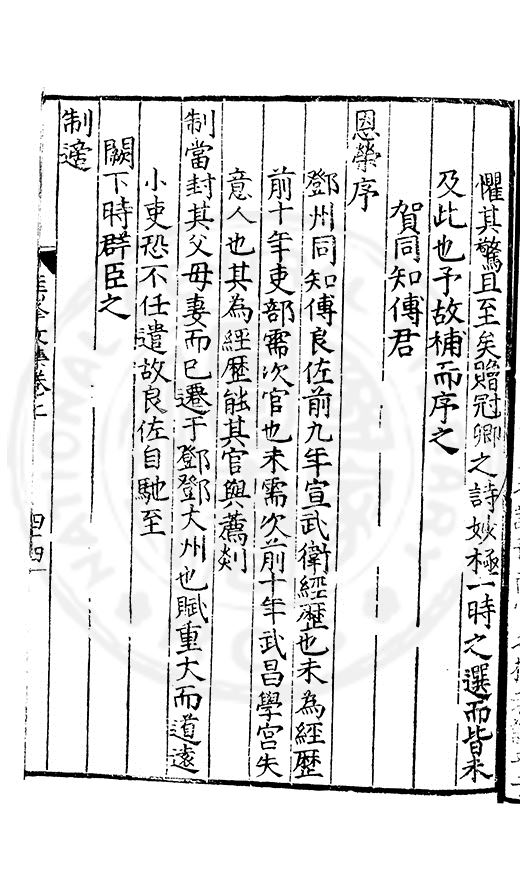 懼其驚且至矣贈冠卿之詩妙極一時之選而皆未
及此也予故補而序之
賀同知傅君
恩榮序
鄧州同知傅良佐前九年宣武衛經歷也未為經歷
前十年吏部需次官也未需次前十年武昌學宮失
意人也其為經歷能其官與薦剡
制當封其父母妻而已遷于鄧鄧大州也賦重大而道遠
小吏恐不任遣故良佐自馳至
闕下時群臣之
制違
四十四